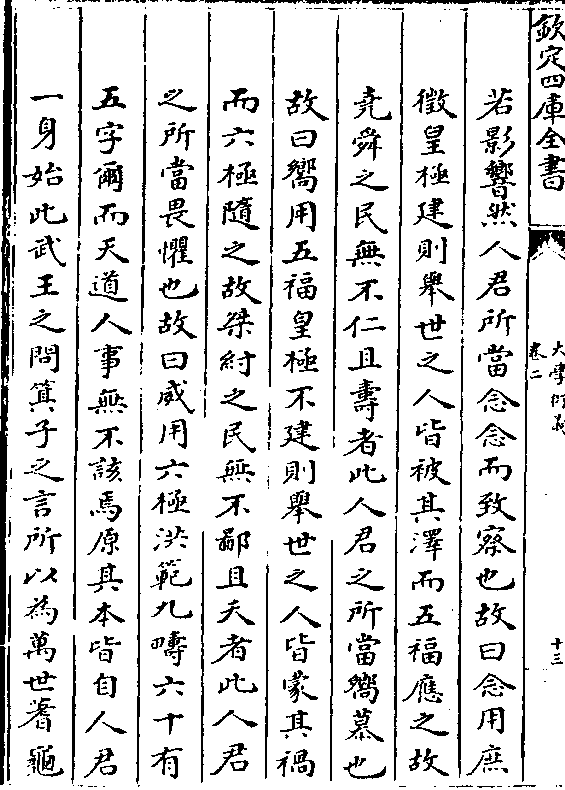 欽定四庫全書
大學衍義
卷二
十三
若影響然人君所當念念而致察也故曰念用庶
徵皇極建則舉世之人皆被其澤而五福應之故
堯舜之民無不仁且壽者此人君之所當嚮慕也
故曰嚮用五福皇極不建則舉世之人皆蒙其禍
而六極隨之故桀紂之民無不鄙且夭者此人君
之所當畏懼也故曰威用六極洪範九疇六十有
五字爾而天道人事無不該焉原其本皆自人君
一身始此武王之問箕子之言所以為萬世蓍龜